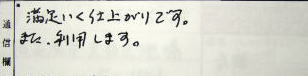 通信欄
・満足いく仕上がりです。
また、利用します。